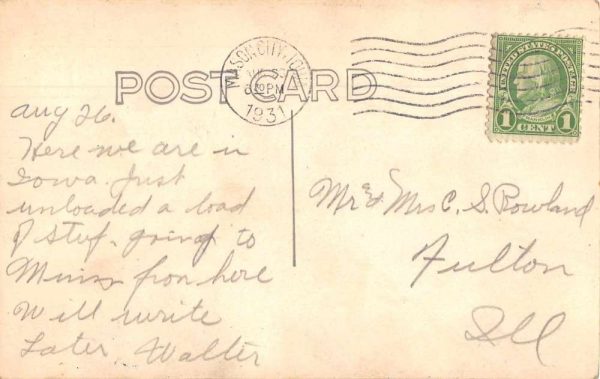 POST CARD
MASON CITY, IOWA
830 PM
1931
UNITED STATES POSTAGE
FRANKLIN
1 CENT 1
Aug 26.
Here we are in
Iowa. Just
unloaded a load
of stuf. going to
Minn from here
Will write
Later, Walter
Mr & Mrs C. S. Rowland
Fulton
Ill